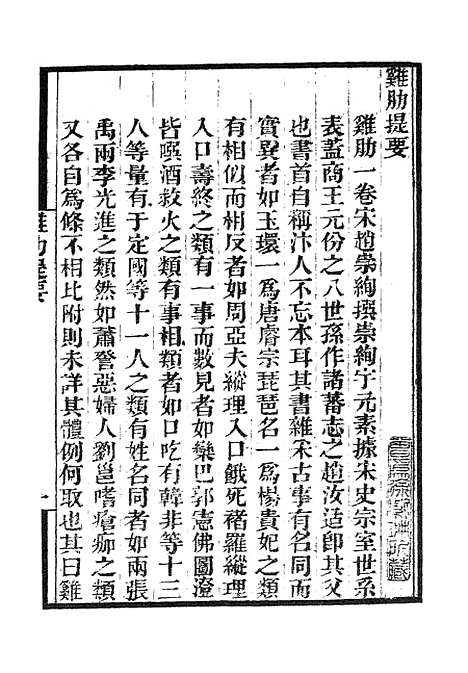 雞肋提要
雞肋一卷宋趙崇絢撰崇絢字元素據宋史宗室世系
表蓋商王元份之八世孫作諸蕃志之趙汝适卽其父
也書首自稱汴人不忘本耳其書雜采古事有名同而
實異者如玉環一爲唐睿宗琵琶名一爲楊貴妃之類
有相似而相反者如周亞夫縱理入口餓死褚羅縱理
入口壽終之類有一事而數見者如欒巴郭憲佛圖澄
皆噀酒救火之類有事相類者如口吃有韓非等十三
人等量有于定國等十一人之類有姓名同者如兩張
禹兩李光進之類然如蕭詧惡婦人劉邕嗜瘡痂之類
又各自爲條不相比附則未詳其體例何取也其曰雞
雞肋提要
一